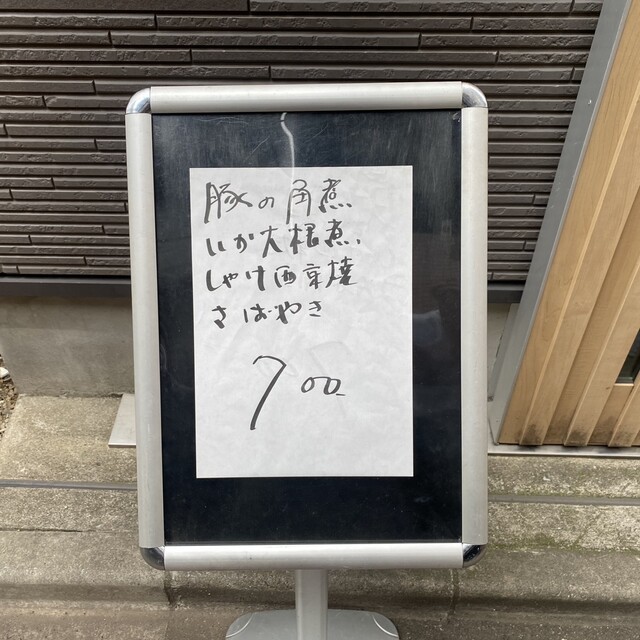 豚の角煮
いか大根煮
しゃけ西京焼
さばやき
700.